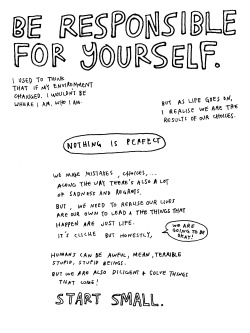 BE RESPONSIBLE
FOR YOURSELF.
I USED TO THINK
THAT IF MY ENVIRONMENT
CHANGED. I WOULDN'T BE
WHERE I AM, WHO I AM.
BUT AS LIFE GOES ON,
I REALISE WE ARE THE
RESULTS OF OUR CHOICES.
NOTHING IS PERFECT
WE MAKE MISTAKES, CHOICES,...
ALONG THE WAY THERE'S ALSO A LOT
OF SADNESS AND REGRETS.
BUT, WE NEED TO REALISE OUR LIVES
ARE OUR OWN TO LEAD & THE THINGS THAT
HAPPEN ARE JUST LIFE.
IT'S CLICHE BUT HONESTLY,
WE ARE
GOING TO BE
OKAY!
HUMANS CAN BE AWFUL, MEAN, TERRIBLE
STUPID, STUPID BEINGS.
BUT WE ARE ALSO DILIGENT & SOLVE THINGS
THAT COME!
START SMALL.